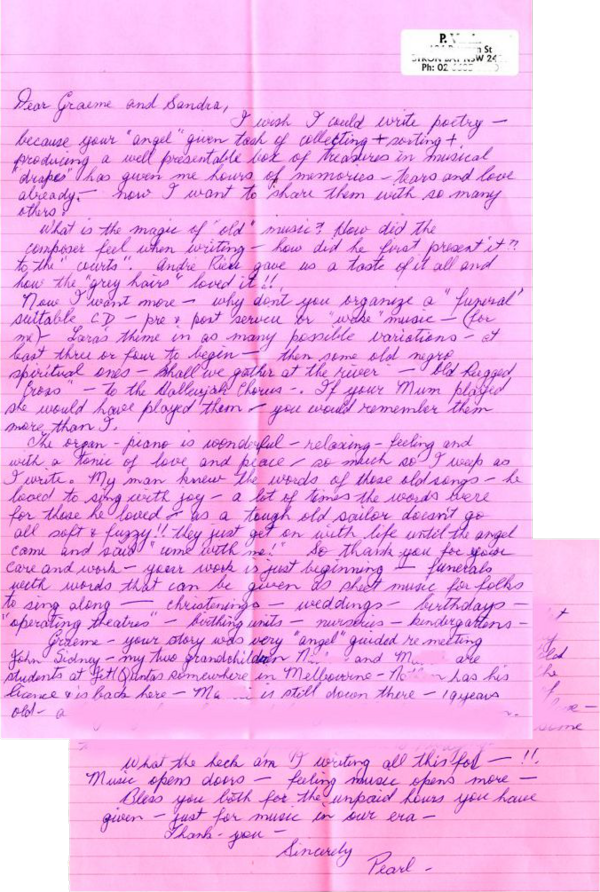 P. V
St
BYRON BAY NSW 24
Ph: 02
Dear Graeme and Sandra,
I wish I could write poetry —
because your "angel" given task of collecting + sorting +
producing a well presentable box of treasures in musical
"drops" has given me hours of memories — tears and love
already — now I want to share them with so many
others.
What is the magic of "old" music? How did the
composer feel when writing — how did he first present it??
to the "courts". Andre Rieu gave us a taste of it all and
how the "grey hairs" loved it!!
Now I want more — why don't you organize a "funeral"
suitable CD — pre & post service or "wake" music — (for
me) — Lara's theme in as many possible variations — at
least three or four to begin — then some old negro
spiritual ones — shall we gather at the river — Old Rugged
Cross" — to the Hallelujah Chorus —. If your Mum played
she would have played them — you would remember them
more than I.
The organ - piano is wonderful - relaxing - feeling and
with a tonic of love and peace — so much so I weep as
I write. My man knew the words of those old songs — he
loved to sing with joy — a lot of times the words were
for those he loved — as a tough old sailor doesn't go
all soft & fuzzy!! they just get on with life until the angel
came and said "come with me!" So thank you for your
care and work — your work is just beginning — funerals
with words that can be given as sheet music for folks
to sing along — christenings — weddings — birthdays —
"operating theatres" — birthing units — nurseries — kindergartens —
Graeme — your story was very "angel" guided re meeting
John Sidney — my two grandchildren N and M are
students at Jet/Quntas somewhere in Melbourne — N has his
licence & is back here — Ma is still down there — 19 years
old — a
some
what the heck am I writing all this for — !!
Music opens doors — feeling music opens more —
Bless you both for the unpaid hours you have
given — just for music in our era —
Thank-you —
Sincerely
Pearl —